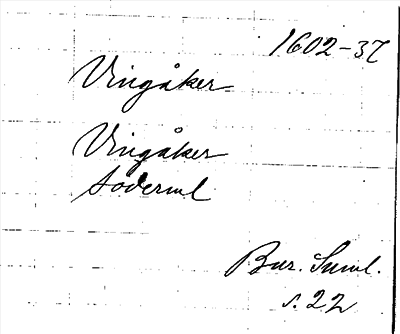 1602-37
Vingåker
Vingåker
Söderml
Bur. Saml.
s. 22